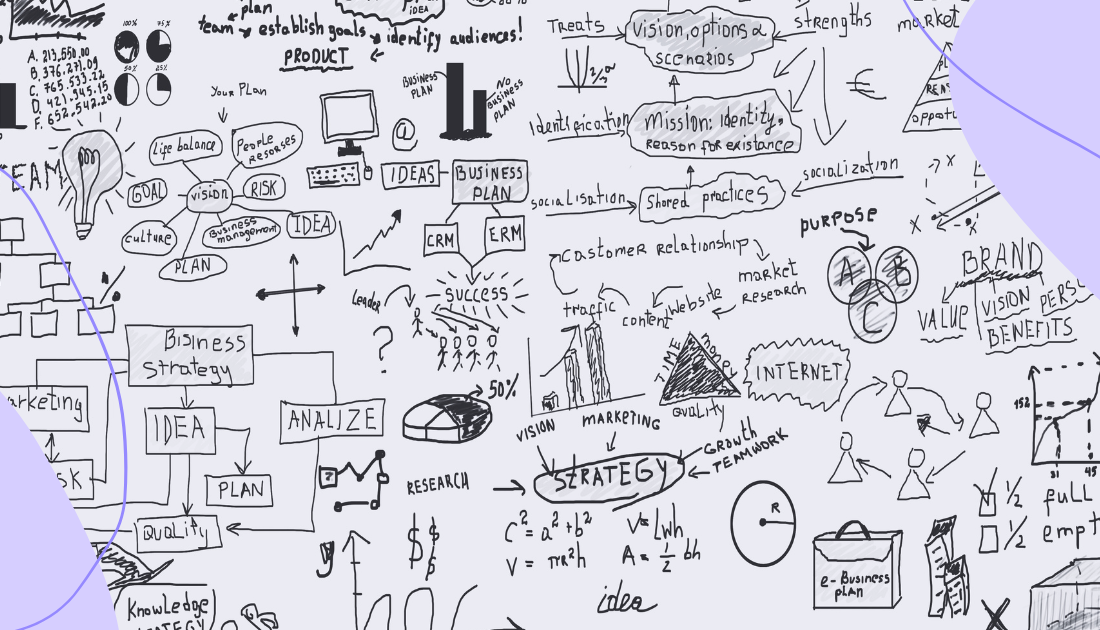 plan
IDEA
team establish goals identify audiences!
PRODUCT
100% 75%
50% 25%
A. 213,550.00
B. 376.271.09
C. 765.533.22
D. 421.945.15
F. 652.542.20
Your Plan
BUSINESS PLAN
NO BUSINESS PLAN
@
Treats
Vision, options &
scenarios
strengths
market
€
Identification
Mission: identity,
Reason for existance
opportu
TEAM
Life balance
People
resorses
GOAL
vision
RISK
culture
Business
management
IDEA
PLAN
IDEAS
BUSINESS
PLAN
CRM
ERM
SUCCESS
Leader
?
socialisation
Shared practices
socialization
x
X
x
Castomer relationship
market
research
traffic
content
Website
purpose
A B
C
BRAND
VALUE
VISION
BENEFITS
Bisiness
strategy
arketing
IDEA
ANALIZE
SK
PLAN
QUALITY
50%
?
RESEARCH
VISION
MARKETING
TIME
QUALITY
INTERNET
STRATEGY
GROWTH
TEAMWORK
152
31 45
$$
C²= a²+b²
V= Lwh
V = πr²h
A = 1/2 bh
R
idea
e-Business
plan
1/2 full
1/2 empt
y
Knowledge